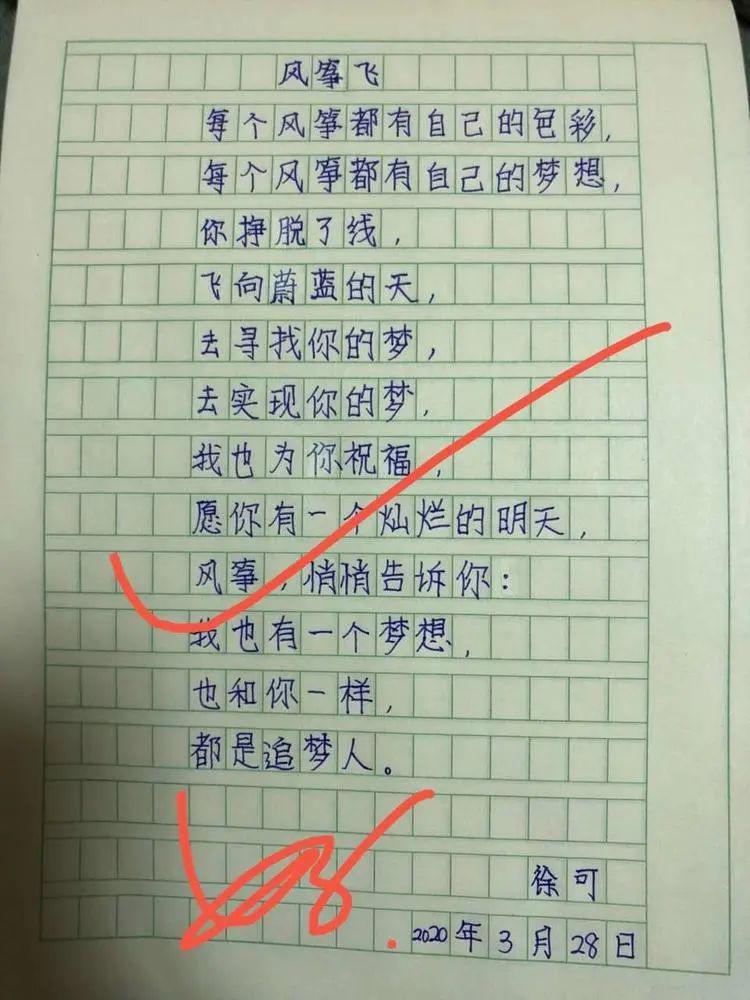 风筝飞
每个风筝都有自己的色彩，
每个风筝都有自己的梦想，
你挣脱了线，
飞向蔚蓝的天，
去寻找你的梦，
去实现你的梦，
我也为你祝福，
愿你有一个灿烂的明天，
风筝，悄悄告诉你：
我也有一个梦想，
也和你一样，
都是追梦人。
徐可
2020年3月28日